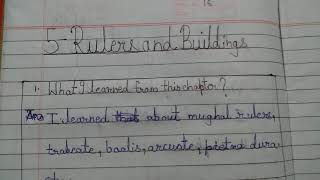 5 - Rulers and Buildings
1. What I learned from this chapter?
Ans I learned about mughal rulers,
trabeate, baolis, arcuate, dura